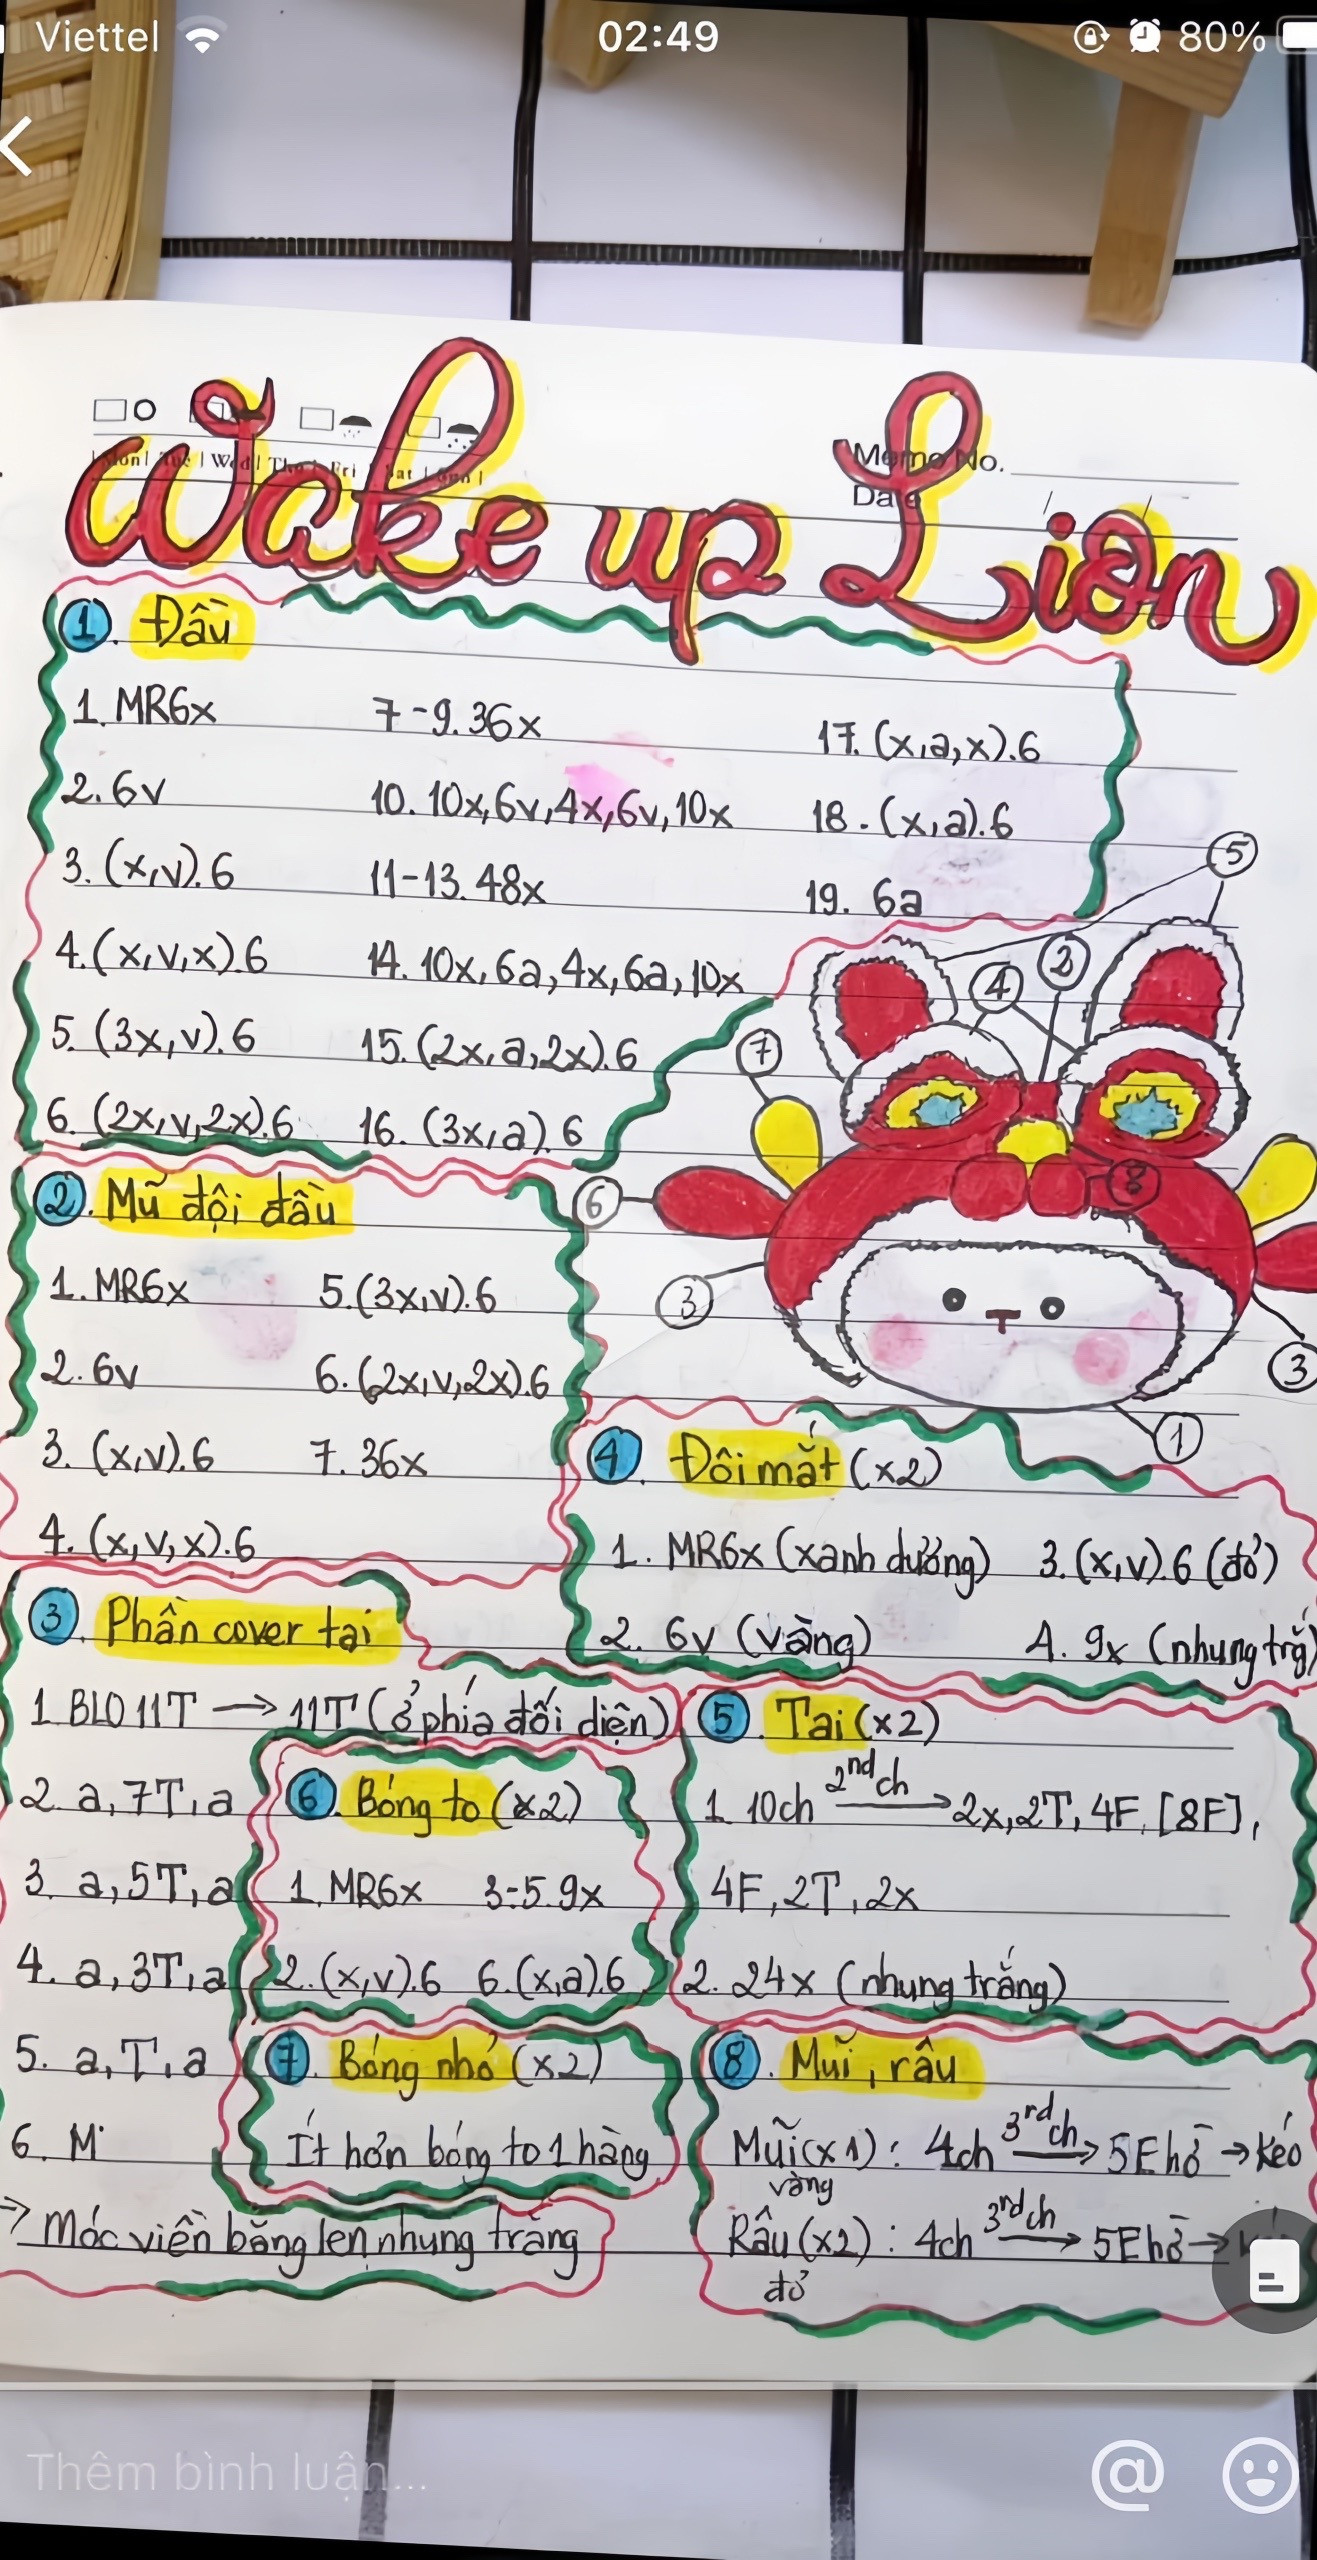 Viettel 02:49 80%
Wake up Lion
Mon | Tue | Wed | Thu | Fri | Sat | Sun |
Memo No.
Date
1. Đầu
1. MR6x
2. 6v
3. (x,v).6
4. (x,v,x).6
5. (3x,v).6
6. (2x,v,2x).6
7-9. 36x
10. 10x,6v,4x,6v,10x
11-13. 48x
14. 10x,6a,4x,6a,10x
15. (2x,a,2x).6
16. (3x,a).6
17. (x,a,x).6
18. (x,a).6
19. 6a
5
2
4
7
6
8
3
3
1
2. Mũ đội đầu
1. MR6x
2. 6v
3. (x,v).6
4. (x,v,x).6
5. (3x,v).6
6. (2x,v,2x).6
7. 36x
4. Đôi mắt (x2)
1. MR6x (xanh dương)
2. 6v (vàng)
3. (x,v).6 (đỏ)
4. 9x (nhung trắ
3. Phần cover tai
1. BLO 11T → 11T (ở phía đối diện)
2. a,7T,a
3. a,5T,a
4. a,3T,a
5. a,T,a
6. M
→ Móc viền bằng len nhung trắng
5. Tai (x2)
1. 10ch 2nd ch → 2x,2T,4F,[8F],
4F,2T,2x
2. 24x (nhung trắng)
6. Bóng to (x2)
1. MR6x
2. (x,v).6
3-5. 9x
6. (x,a).6
7. Bóng nhỏ (x2)
Ít hơn bóng to 1 hàng
8. Mũi, râu
Mũi (x1) : 4ch 3rd ch → 5E hở → kéo
vàng
Râu (x2) : 4ch 3rd ch → 5E hở →
đỏ
Thêm bình luận...